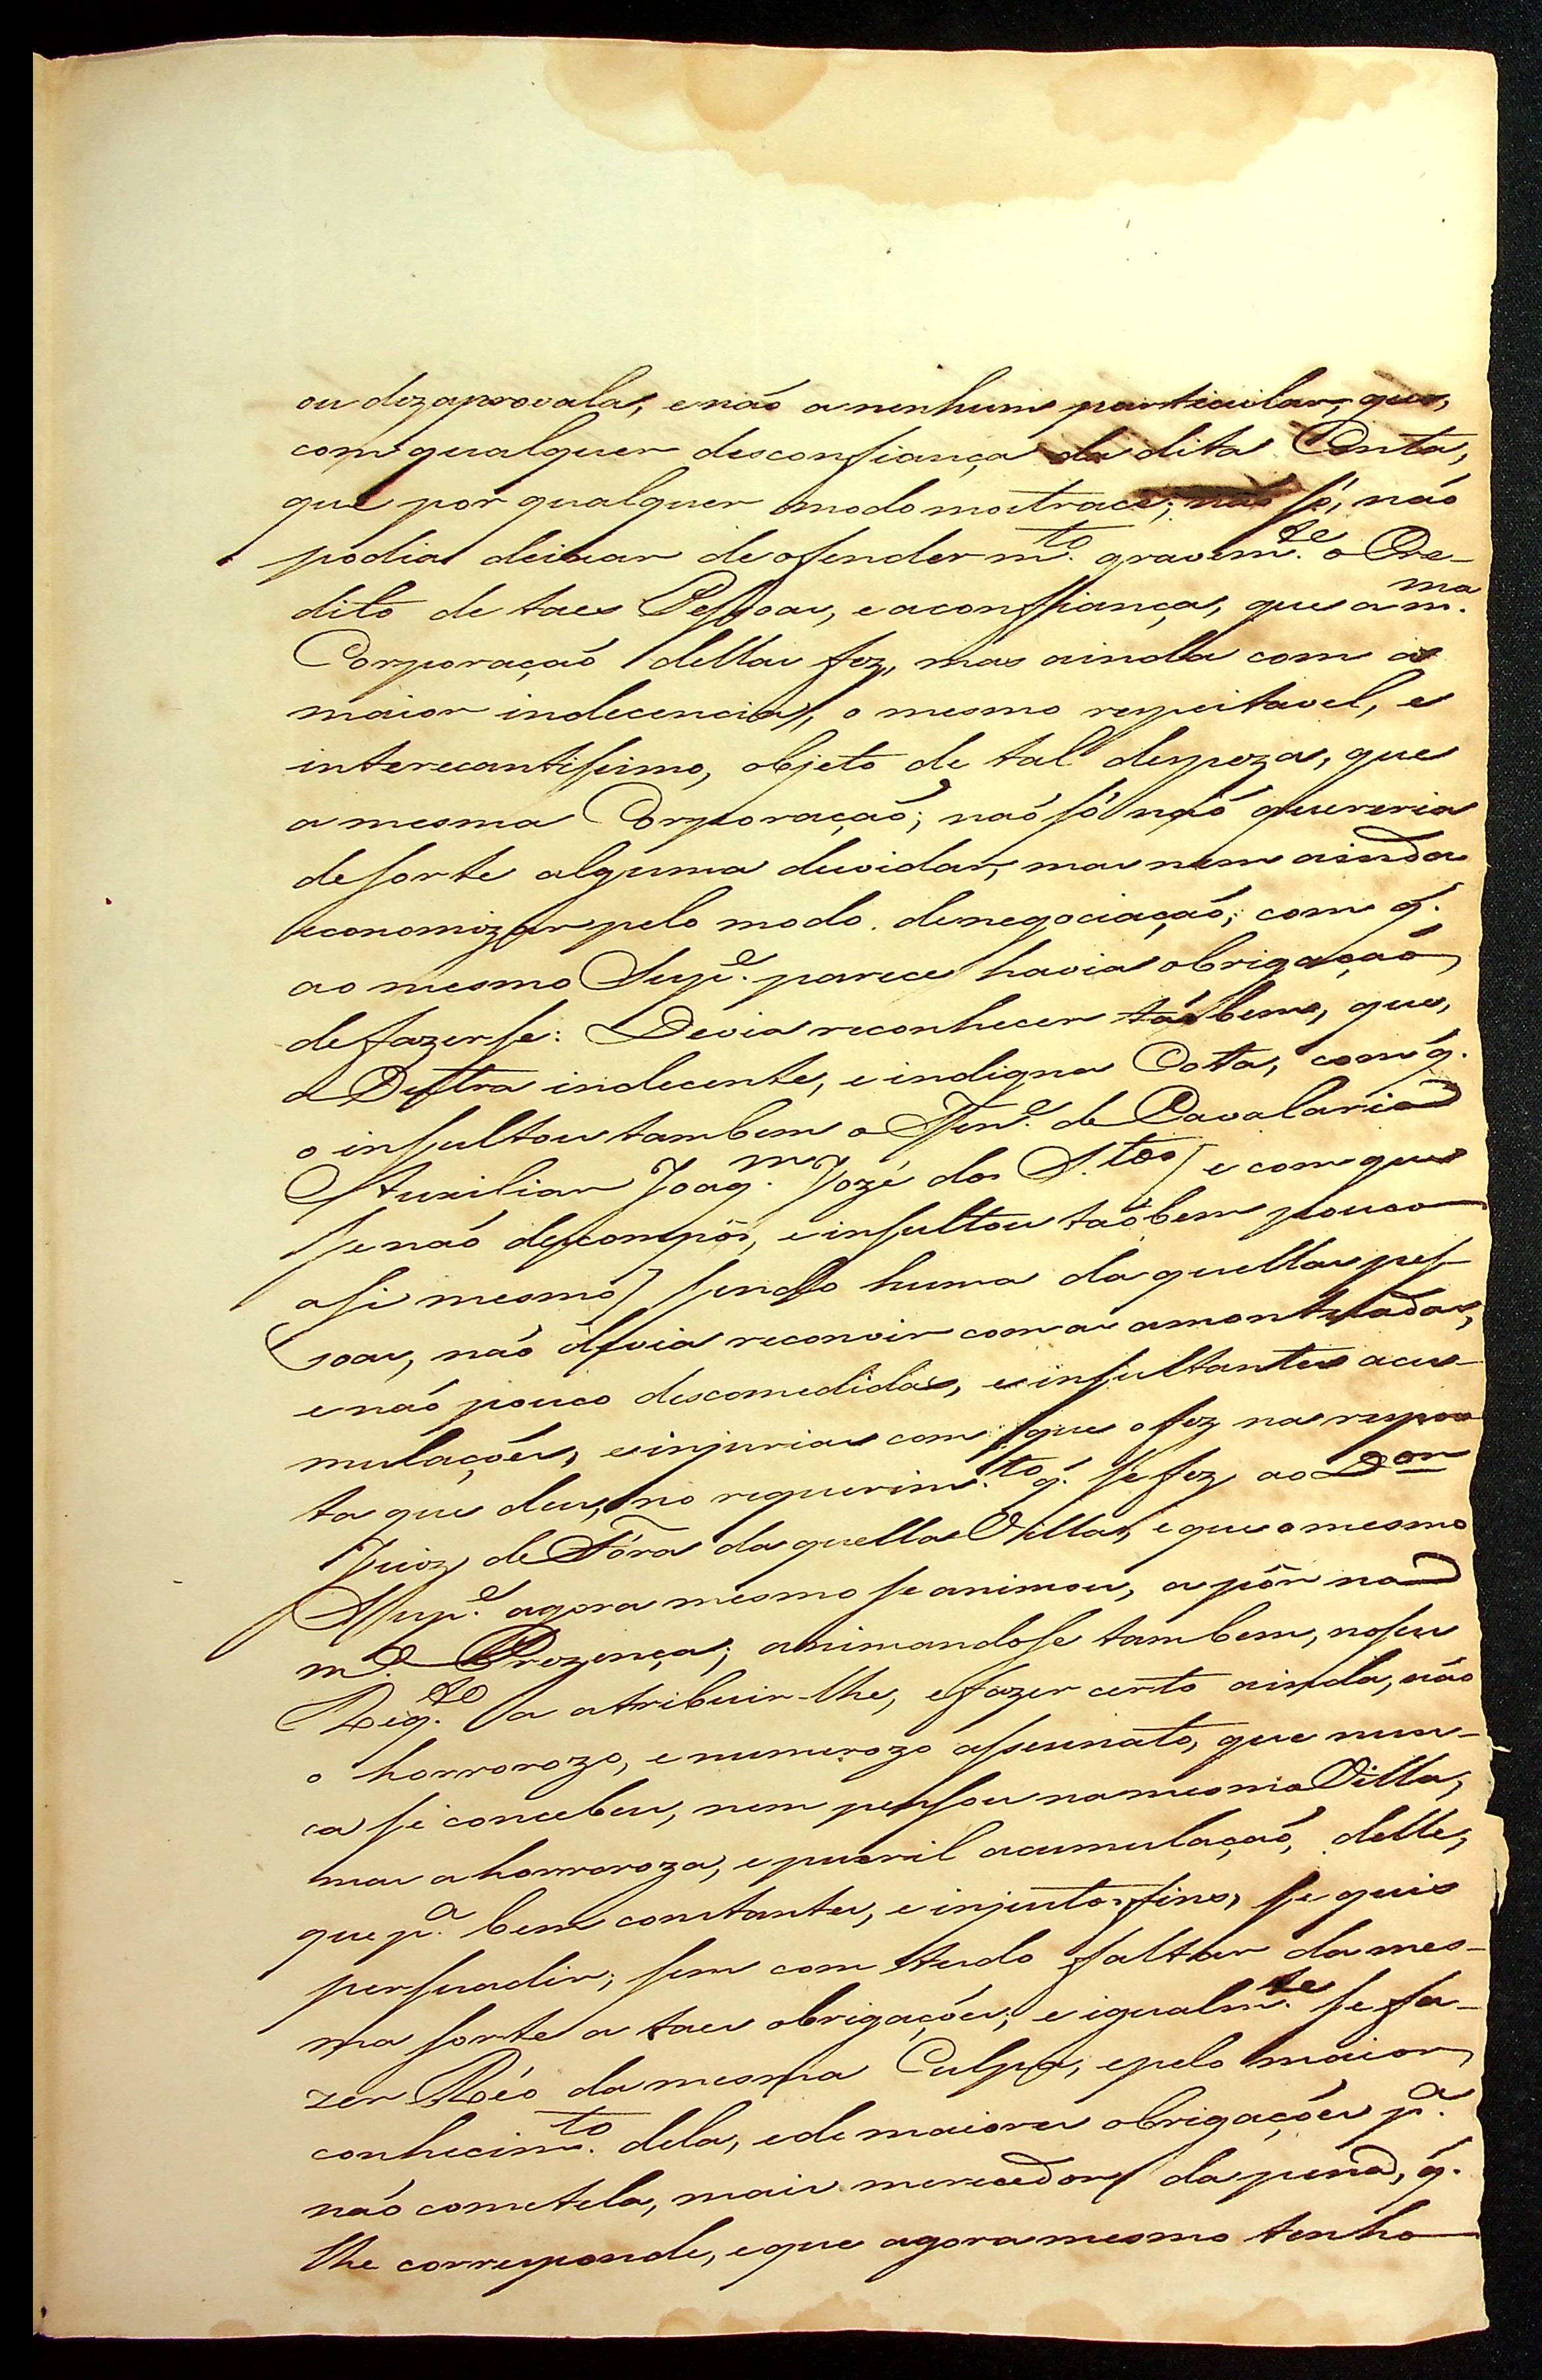 ou dezaprovala, e não a nenhum particular, que,
com qualquer desconfiança da dita Conta,
que por qualquer modo mostrace; não só, não
podia deixar de ofender m.to gravem.te o Cre-
dito de taes Pessoas, e a confiança, que a m.ma
Corporação dellas fez, mas ainda com a
maior indecencia, o mesmo respeitavel, e
interecantissimo, objeto de tal despeza, que
a mesma Corporação; não só não quereria
de sorte alguma duvidar, mas nem ainda
economizar pelo modo de negociação; com q.
ao mesmo Sup.e parece havia obrigação
de fazerse: Devia reconhecer tãobem, que,
a Destra indecente, e indigna Cota, com q.
o insultou tambem o Ten.e de Cavalaria
Auxiliar Joaq.m Jozé dos S.tos [e com que
se não descompôs, e insultou tãobem pouco
a si mesmo] sendo huma daquellas pes-
soas, não devia reconvir com as amontuadas,
e não pouco descomedidas, e insultantes acu-
mulações, e injurias com que o fez na respos
ta que deu, no requerim.to q. se fez ao D.or
Juiz de Fóra daquella Villa, e que o mesmo
Sup.e agora mesmo se animou, a pôr na
m.a Prezença; animandose tambem, no seu
Req.to a atribuir-lhe, e fazer certo ainda, não
o horrorozo, e numerozo assasinato, que nun-
ca se concebeu, nem pensou na mesma Villa,
mas a horroroza, e pueril acumulação, delle,
que p.a bem constantes, e injustos fins, se quis
persuadir; sem com tudo faltar da mes-
ma sorte a taes obrigações; e igualm.te se fa-
zer Réo da mesma Culpa, e pelo maior
conhecim.to dela, e de maiores obrigações p.a
não cometela, mais merecedor da pena, q.
lhe corresponde, e que agora mesmo tenho